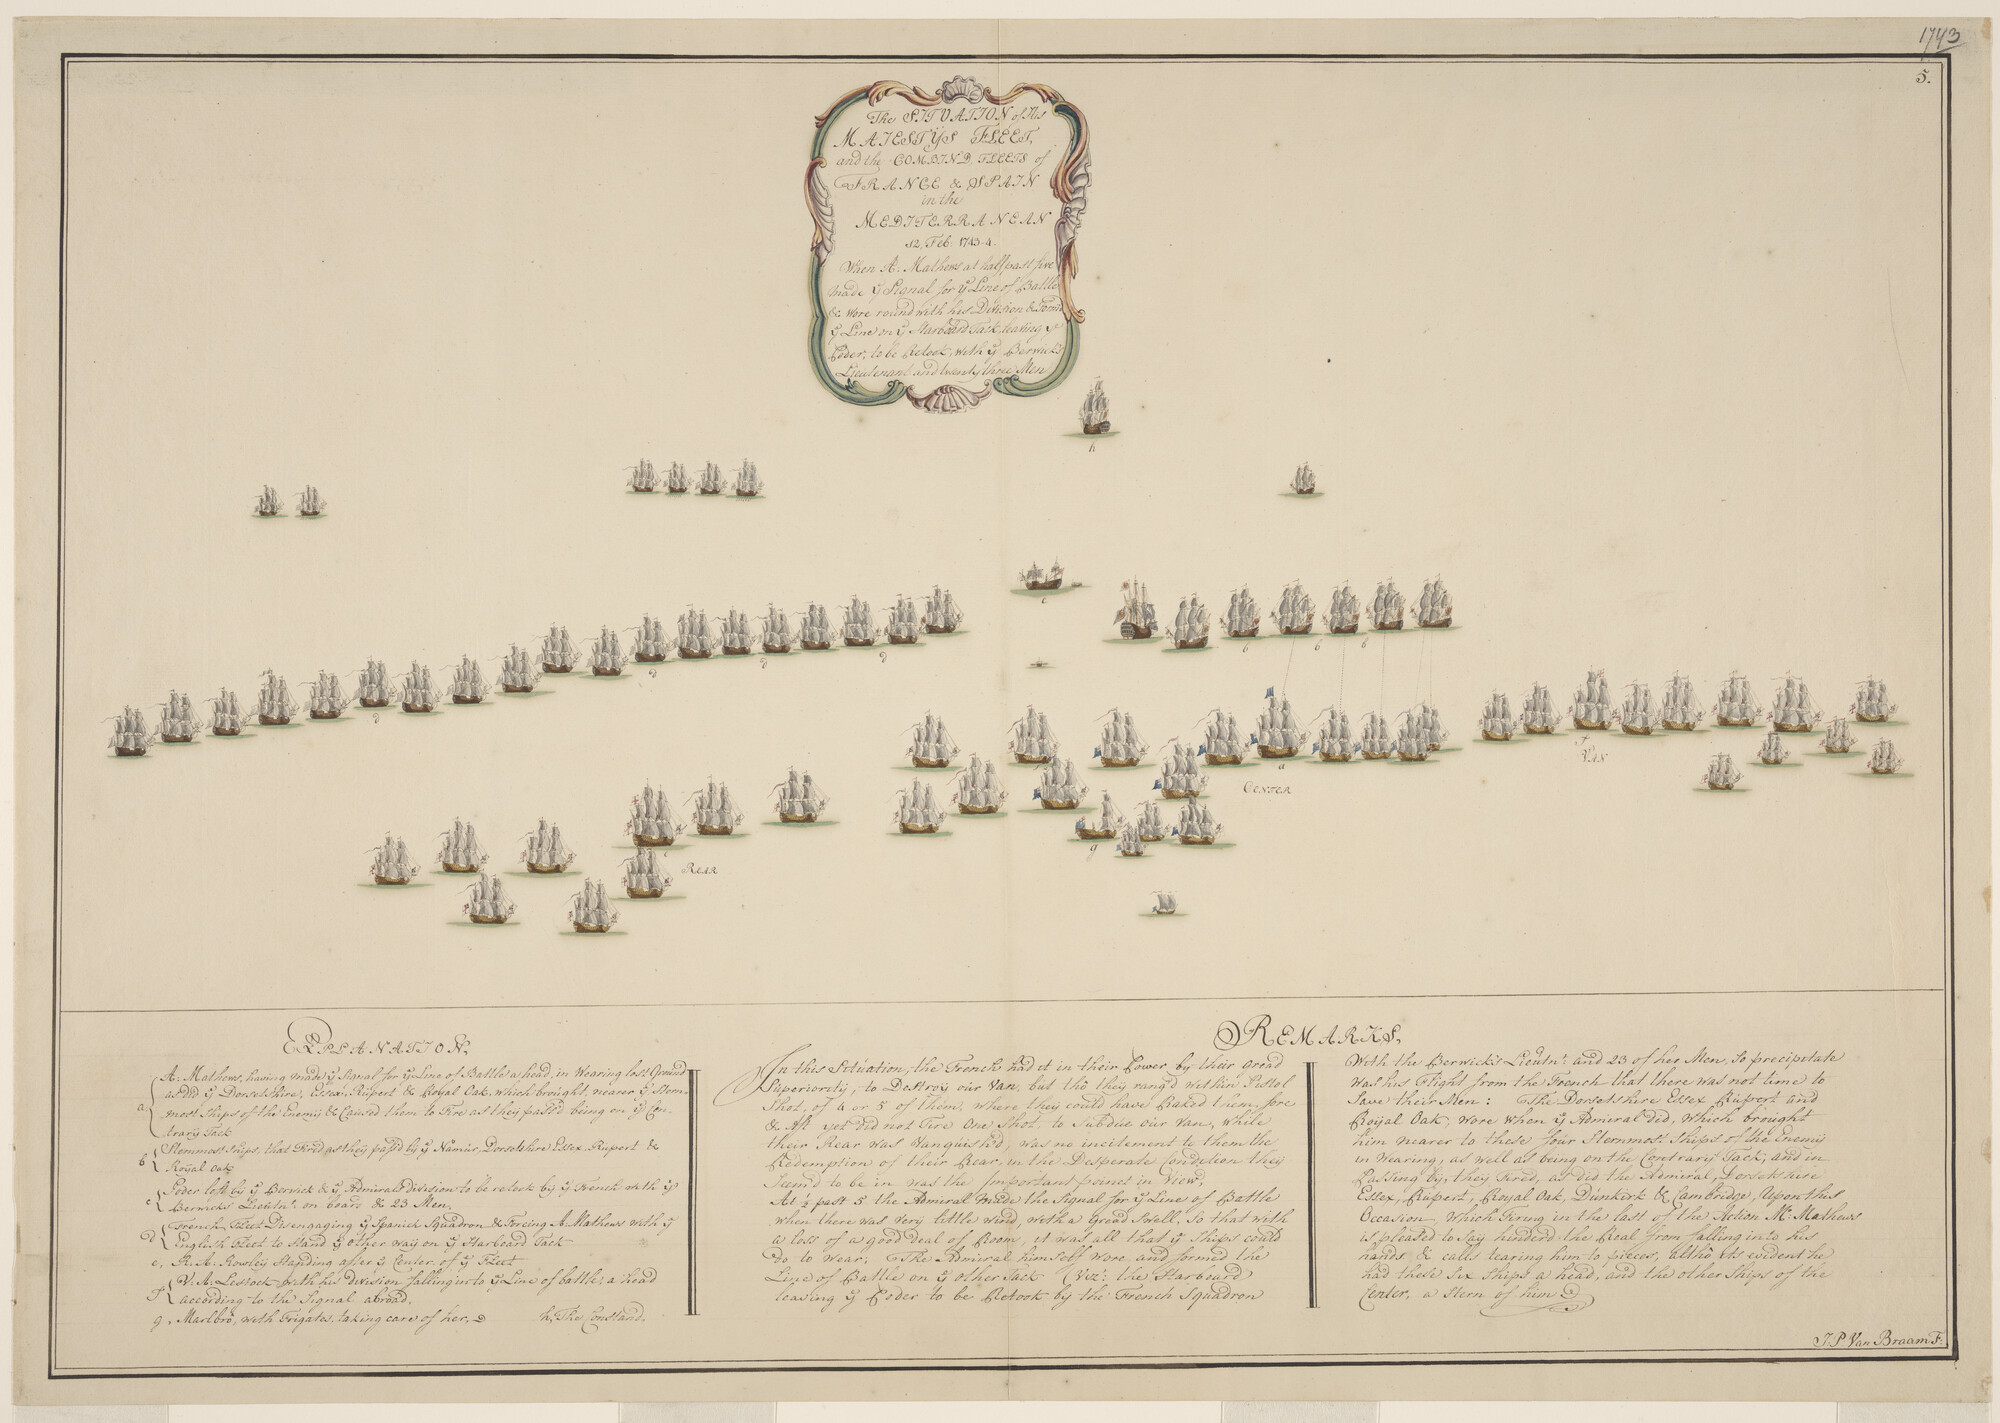 1743
5.
The SITUATION of His
MAJESTYS FLEET,
and the COMBIND, FLEETS of
FRANCE & SPAIN
in the
MEDITERRANEAN
12, Feb: 1743-4.
When A: Mathews at half past five
made ÿ Signal for ÿ Line of Battle
& wore round with his Division & Form'd
ÿ Line on ÿ Starboard Tack, leaving ye
Poder, to be Retook, with ÿ Berwick's
Lieutenant and twenty three Men
h
c
b b b
d d d d
a
f
VAN
CENTER
g
e
REAR
EXPLANATION,
a A: Mathews, having made ÿ Signal for ÿ Line of Battle a head, in Wearing lost Ground
as did ÿ Dorsetshire, Essex, Rupert & Royal Oak, which brought, nearer ÿ Stern
most Ships of the Enemy & Caused them to Fire as they pass'd being on ÿ Con-
trary Tack
b Stemmost Ships, that Fired as they pass'd by ÿ Namur, Dorsetshire Essex, Rupert &
Royal Oak
c Poder left by ÿ Berwick & ÿ Admirals division to be retook by ÿ French with ÿ
Berwicks Lieutnt. on board & 23 Men,
d French, Fleet Disengaging ÿ Spanish Squadron & Forcing A: Mathews with ÿ
English Fleet to Stand ÿ other way on ÿ Starboard Tack
e, R: A: Rowley Standing after ÿ Center of ÿ Fleet
f V: A: Lestock with his division falling into ÿ Line of battle; a head
according to the Signal abroad,
g, Marlbro, with Frigates, taking care of her, h, The Constand,
REMARKS,
In this Situation, the French had it in their Power by their Great
Superiority, to Destroy our Van, but tho they rang'd within Pistol
Shot, of 4 or 5 of them, where they could have Raked them fore
& Aft yet did not Fire One Shot, to Subdue our Van, while
their Rear was Vanquish'd, was no incitement to them the
Redemption of their Rear, in the Desperate Condition they
Seem'd to be in was the Important point in View,
At ½ past 5 the Admiral made the Signal for ÿ Line of Battle
when there was very little wind, with a Great Swell, so that with
a loss of a good Deal of Room, it was all that ÿ Ships could
do to wear; The Admiral himself wore and formed the
Line of Battle on ÿ other Tack (Viz: the Starboard)
leaving ÿ Poder to be Retook by the French Squadron
With the Berwick's Lieutnt: and 23 of her Men, so precipetate
was his Flight from the French that there was not time to
Save their Men: The Dorsetshire Essex Rupert and
Royal Oak, wore when ÿ Admiral did, which brought
him nearer to these four Sternmost Ships of the Enemy
in Wearing, as well as being on the Contrary Tack; and in
Passing by, they Fired, as did the Admiral, Dorsetshire
Essex, Rupert, Royal Oak, Dunkirk & Cambridge, Upon this
Occasion, which Firing in the last of the Action Mr: Mathews
is pleased to say hinder'd the Real from falling into his
hands, & calls tearing him to pieces, altho tis evident he
had these Six Ships a head, and the other Ships of the
Center, a Stern of him
J. P. Van Braam F: